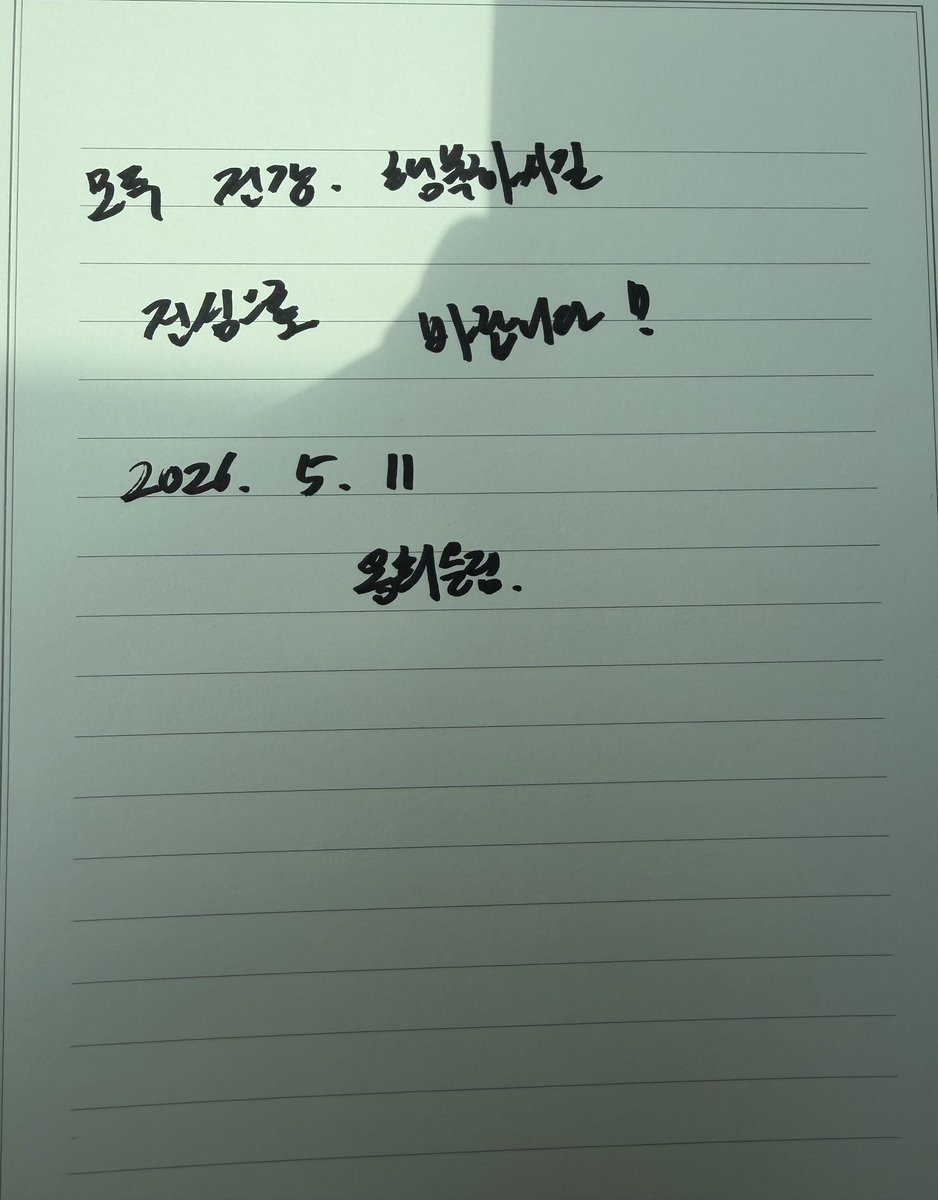 모두 건강. 행복하시길
진심으로 바랍니다!
2026. 5. 11
용희드림.